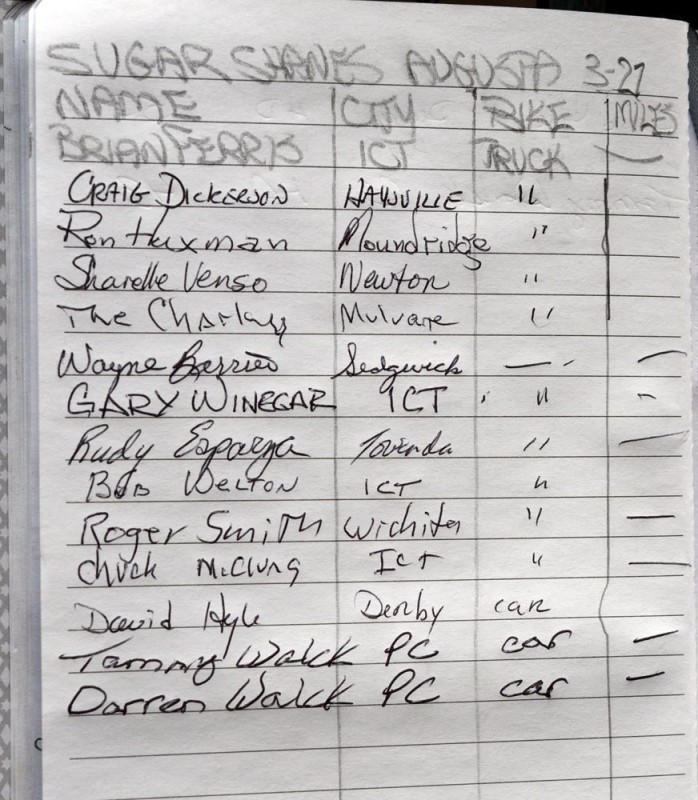 SUGAR SHANES AUGUSTA 3-27
NAME CITY BIKE MILES
BRIAN FERRIS ICT TRUCK —
CRAIG DICKERSON HAYSVILLE "
Ron Huxman Moundridge "
Sharelle Venso Newton "
The Charlays Mulvane "
Wayne Berries Sedgwick — —
GARY WINEGAR ICT " -
Rudy Esparza Towanda " —
BOB WELTON ICT "
Roger Smith Wichita " —
Chuck McClung ICT " —
David Hyle Derby car
Tammy Walck PC car —
Darren Walck PC car —